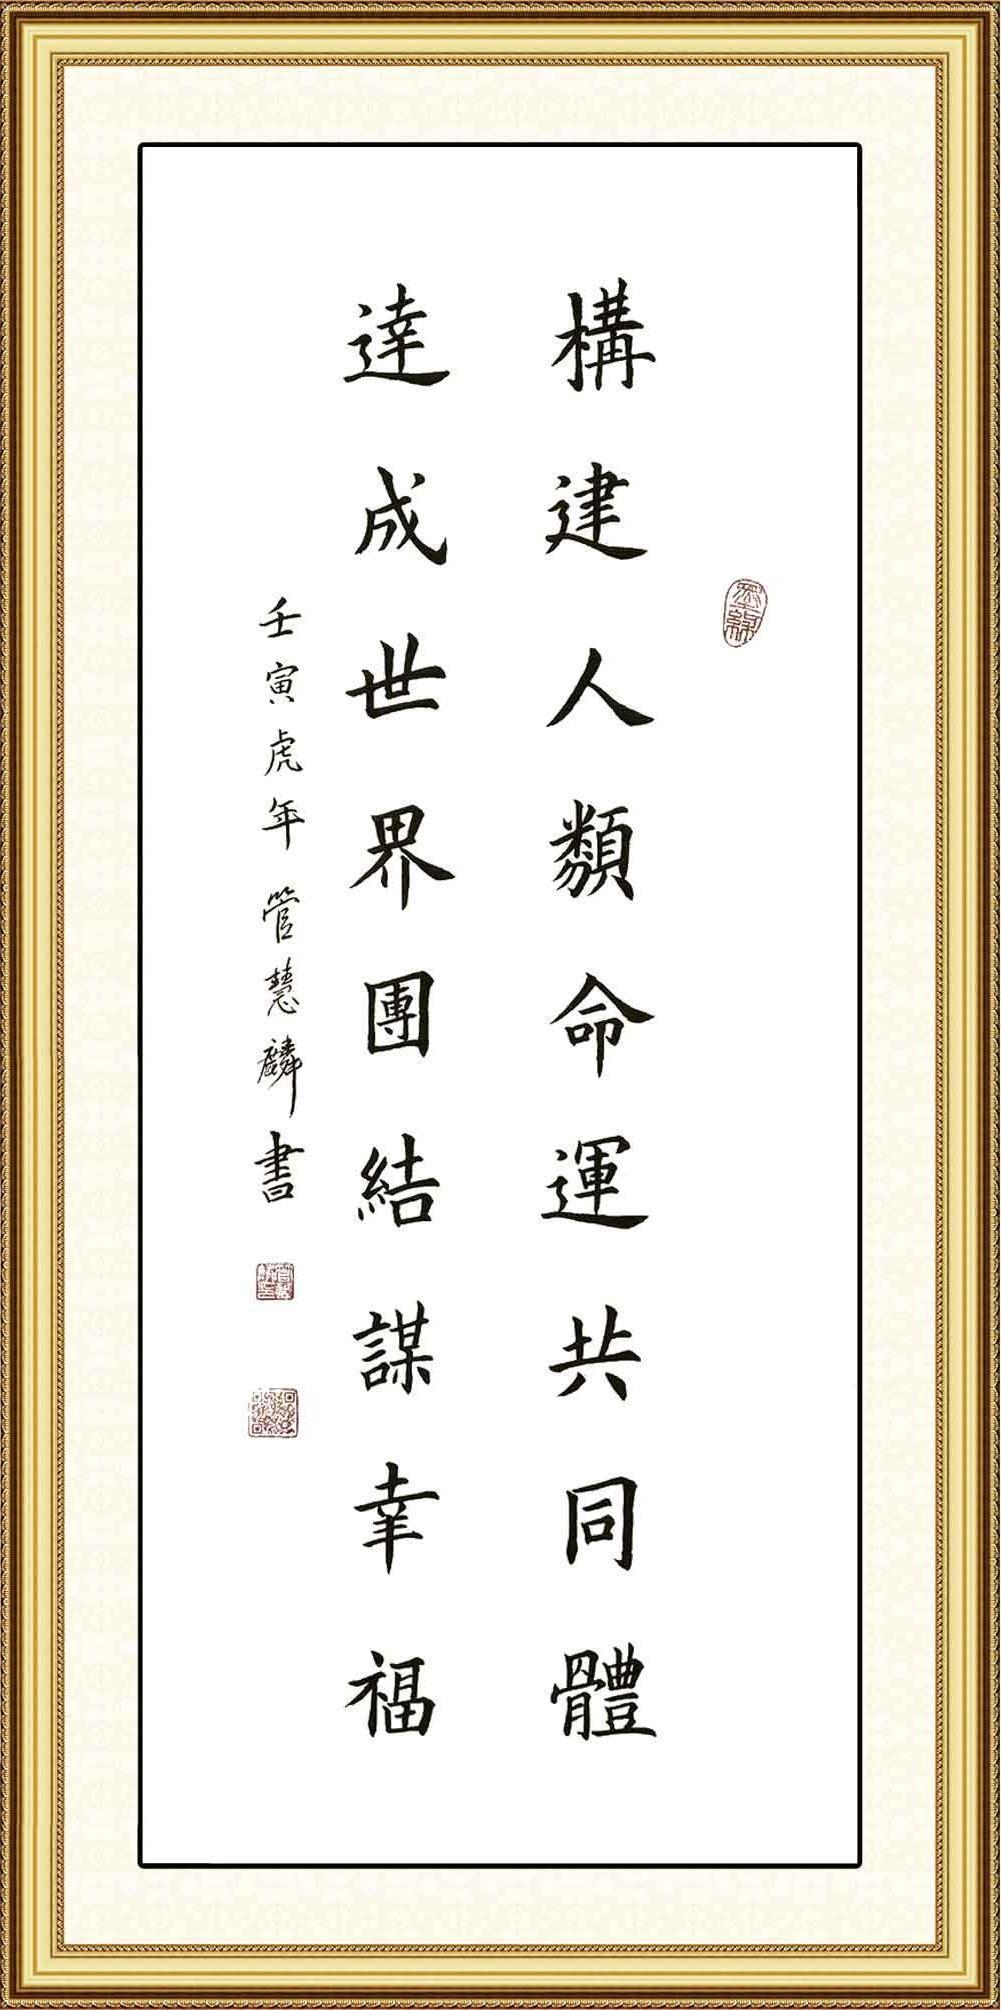 構建人類命運共同體
達成世界團結謀幸福
壬寅虎年 管慧麟書
墨緣